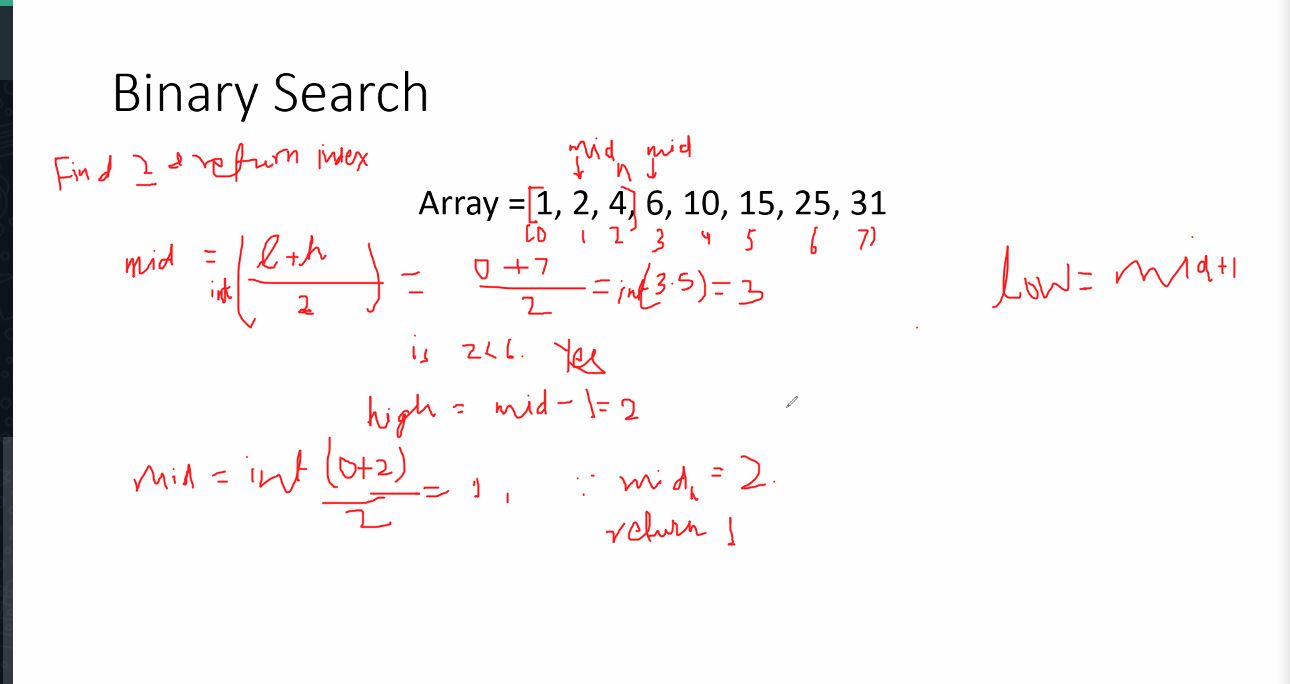 Binary Search
Find 2 & return index
mid mid
h
Array = [1, 2, 4], 6, 10, 15, 25, 31
[0 1 2 3 4 5 6 7]
mid = int(l+h/2) = 0+7/2 = int(3.5) = 3
low = mid+1
is 2<6. Yes
high = mid - 1 = 2
mid = int (0+2)/2 = 1, ∵ mid = 2.
return 1